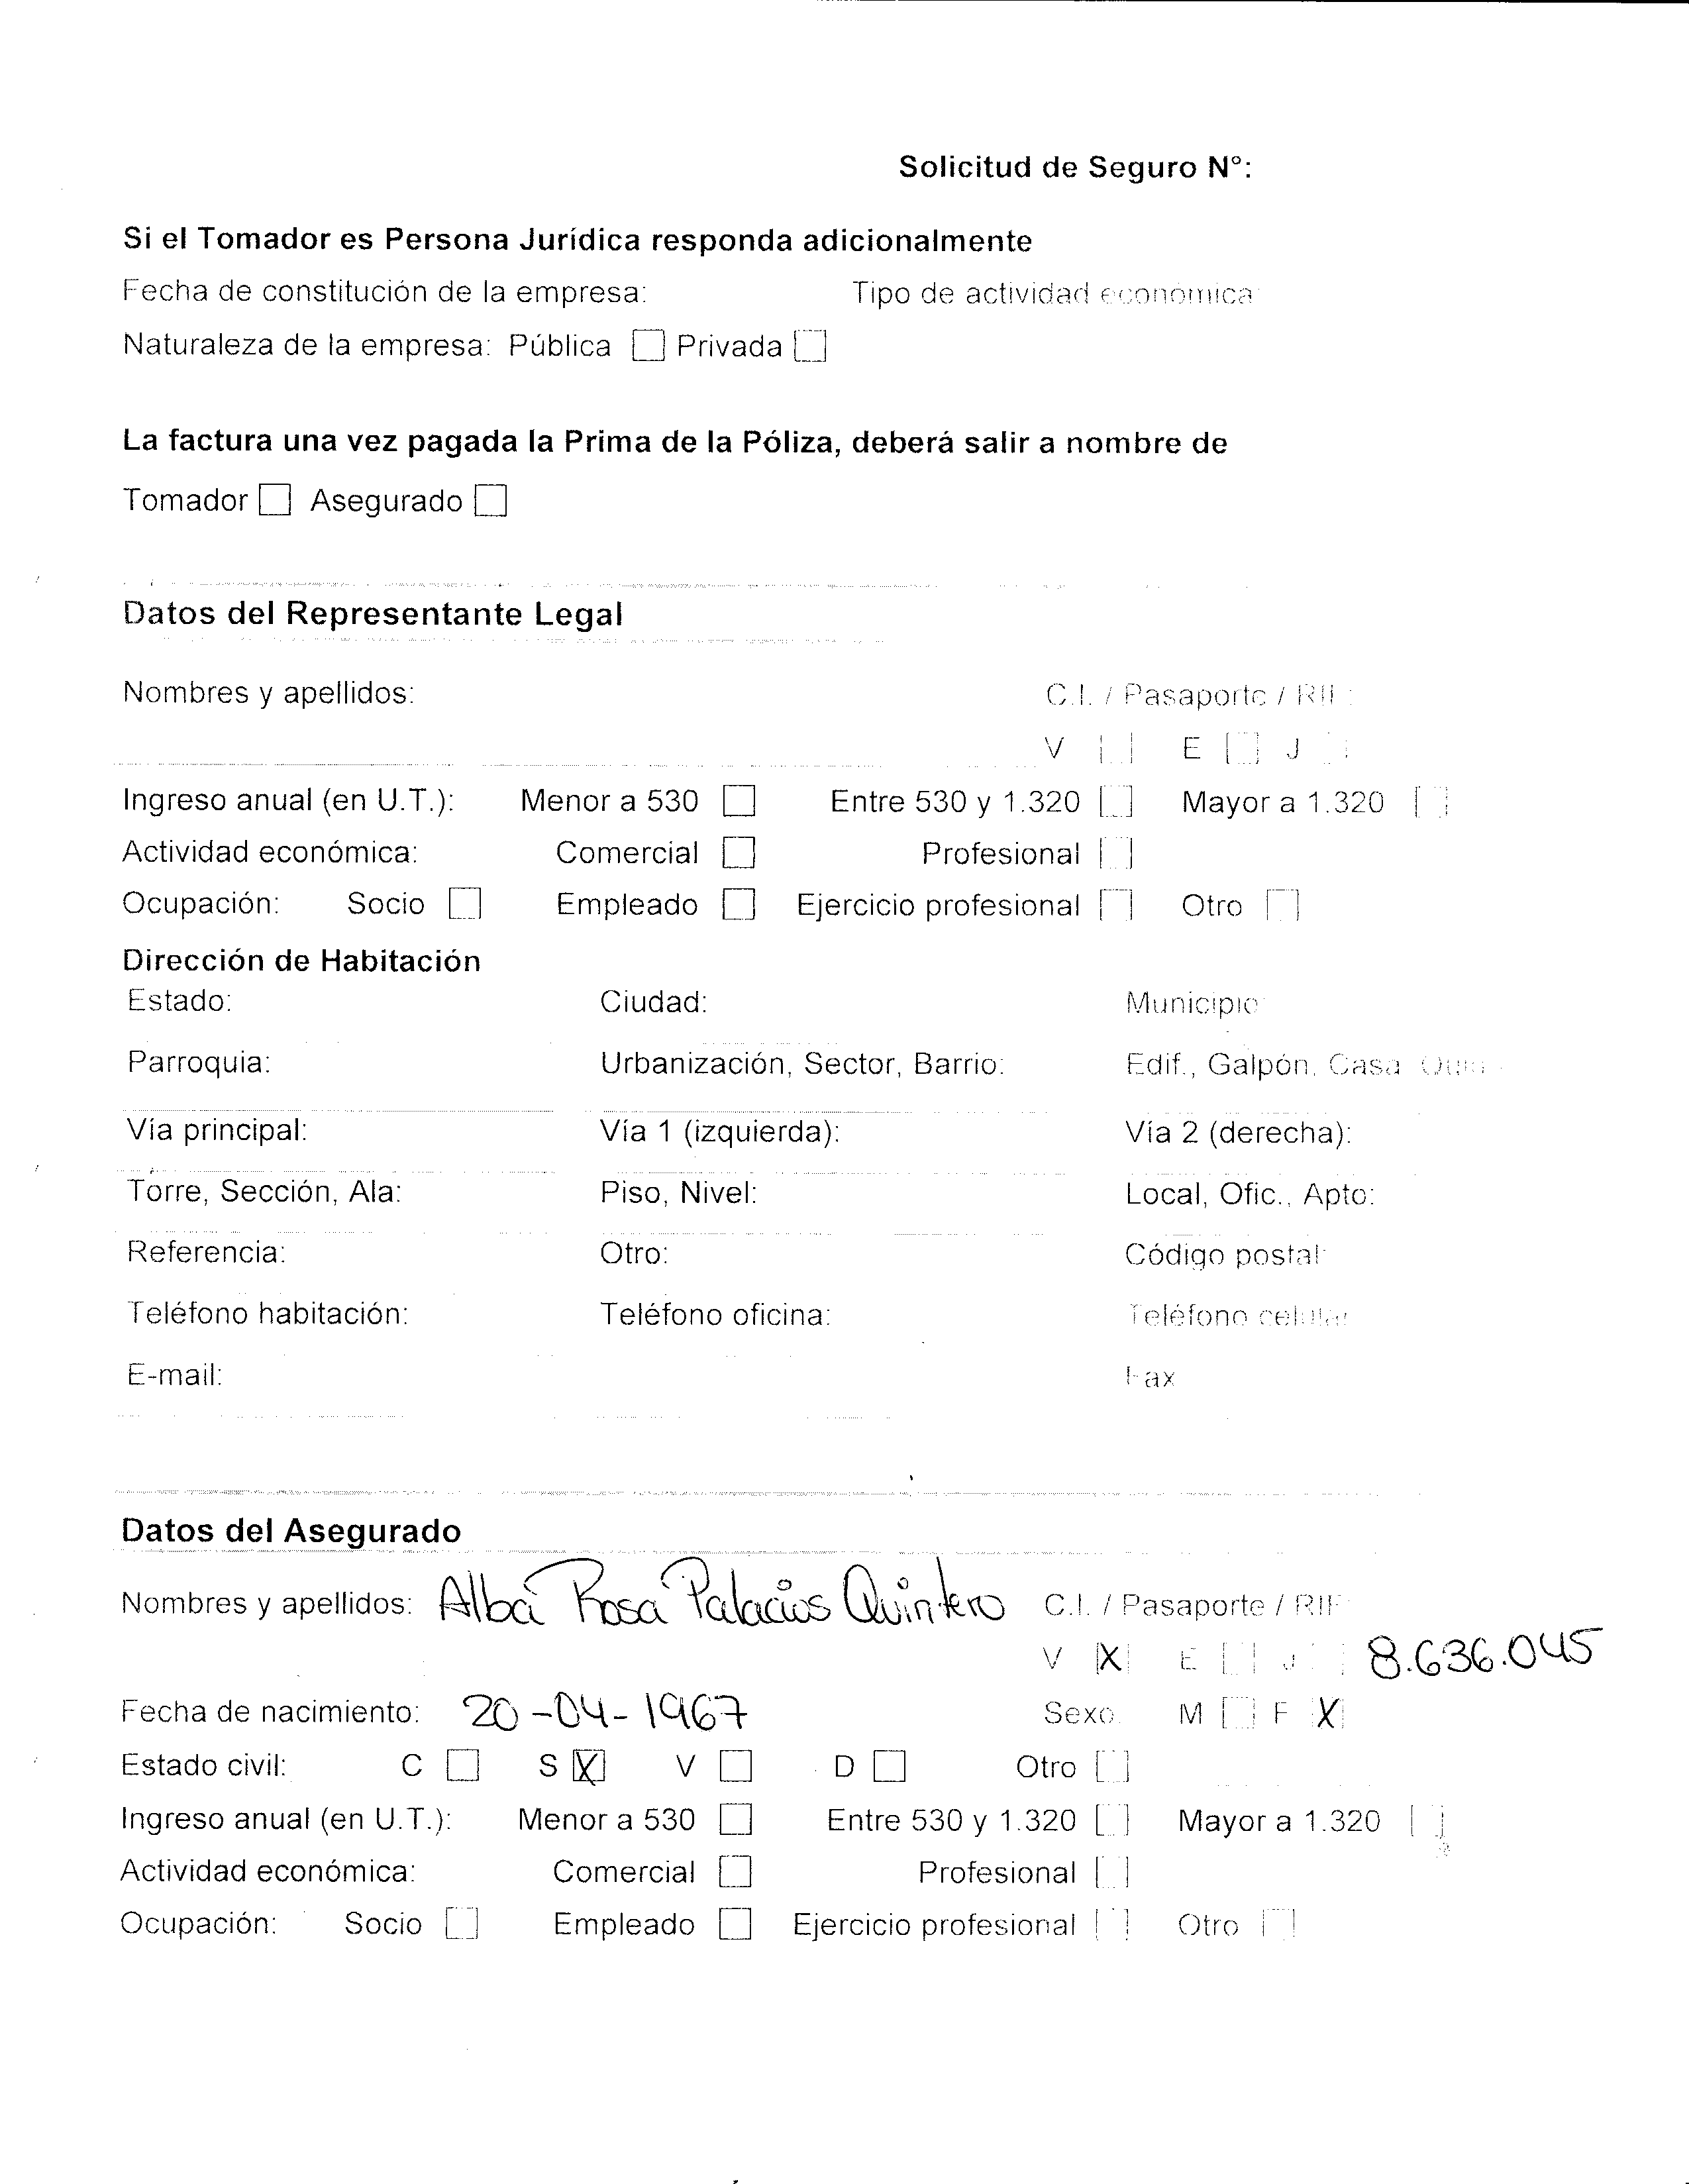 Solicitud de Seguro N°:
Si el Tomador es Persona Jurídica responda adicionalmente
Fecha de constitución de la empresa: Tipo de actividad económica
Naturaleza de la empresa: Pública Privada
La factura una vez pagada la Prima de la Póliza, deberá salir a nombre de
Tomador Asegurado
Datos del Representante Legal
Nombres y apellidos: C.I. / Pasaporte / RIF:
V E J
Ingreso anual (en U.T.): Menor a 530 Entre 530 y 1.320 Mayor a 1.320
Actividad económica: Comercial Profesional
Ocupación: Socio Empleado Ejercicio profesional Otro
Dirección de Habitación
Estado: Ciudad: Municipio
Parroquia: Urbanización, Sector, Barrio: Edif., Galpón, Casa
Vía principal: Vía 1 (izquierda): Vía 2 (derecha):
Torre, Sección, Ala: Piso, Nivel: Local, Ofic., Apto:
Referencia: Otro: Código postal
Teléfono habitación: Teléfono oficina: Teléfono celular
E-mail: Fax
Datos del Asegurado
Nombres y apellidos: Alba Rosa Palacios Quintero C.I. / Pasaporte / RIF
V X E J 8.636.045
Fecha de nacimiento: 20-04-1967 Sexo M F X
Estado civil: C S X V D Otro
Ingreso anual (en U.T.): Menor a 530 Entre 530 y 1.320 Mayor a 1.320
Actividad económica: Comercial Profesional
Ocupación: Socio Empleado Ejercicio profesional Otro